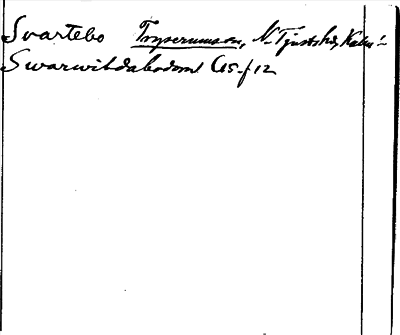 Svartebo Tryserums sn, N. Tjusts hd, Kalm. l.
Swarwitdabodom C15 f 12